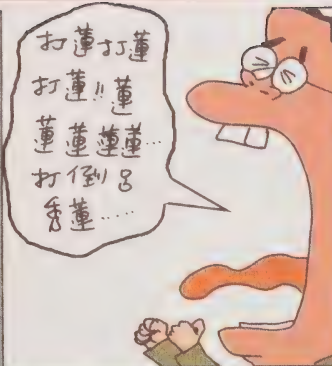 打蓮打蓮
打蓮!!蓮
蓮蓮蓮蓮…
打倒呂
秀蓮……